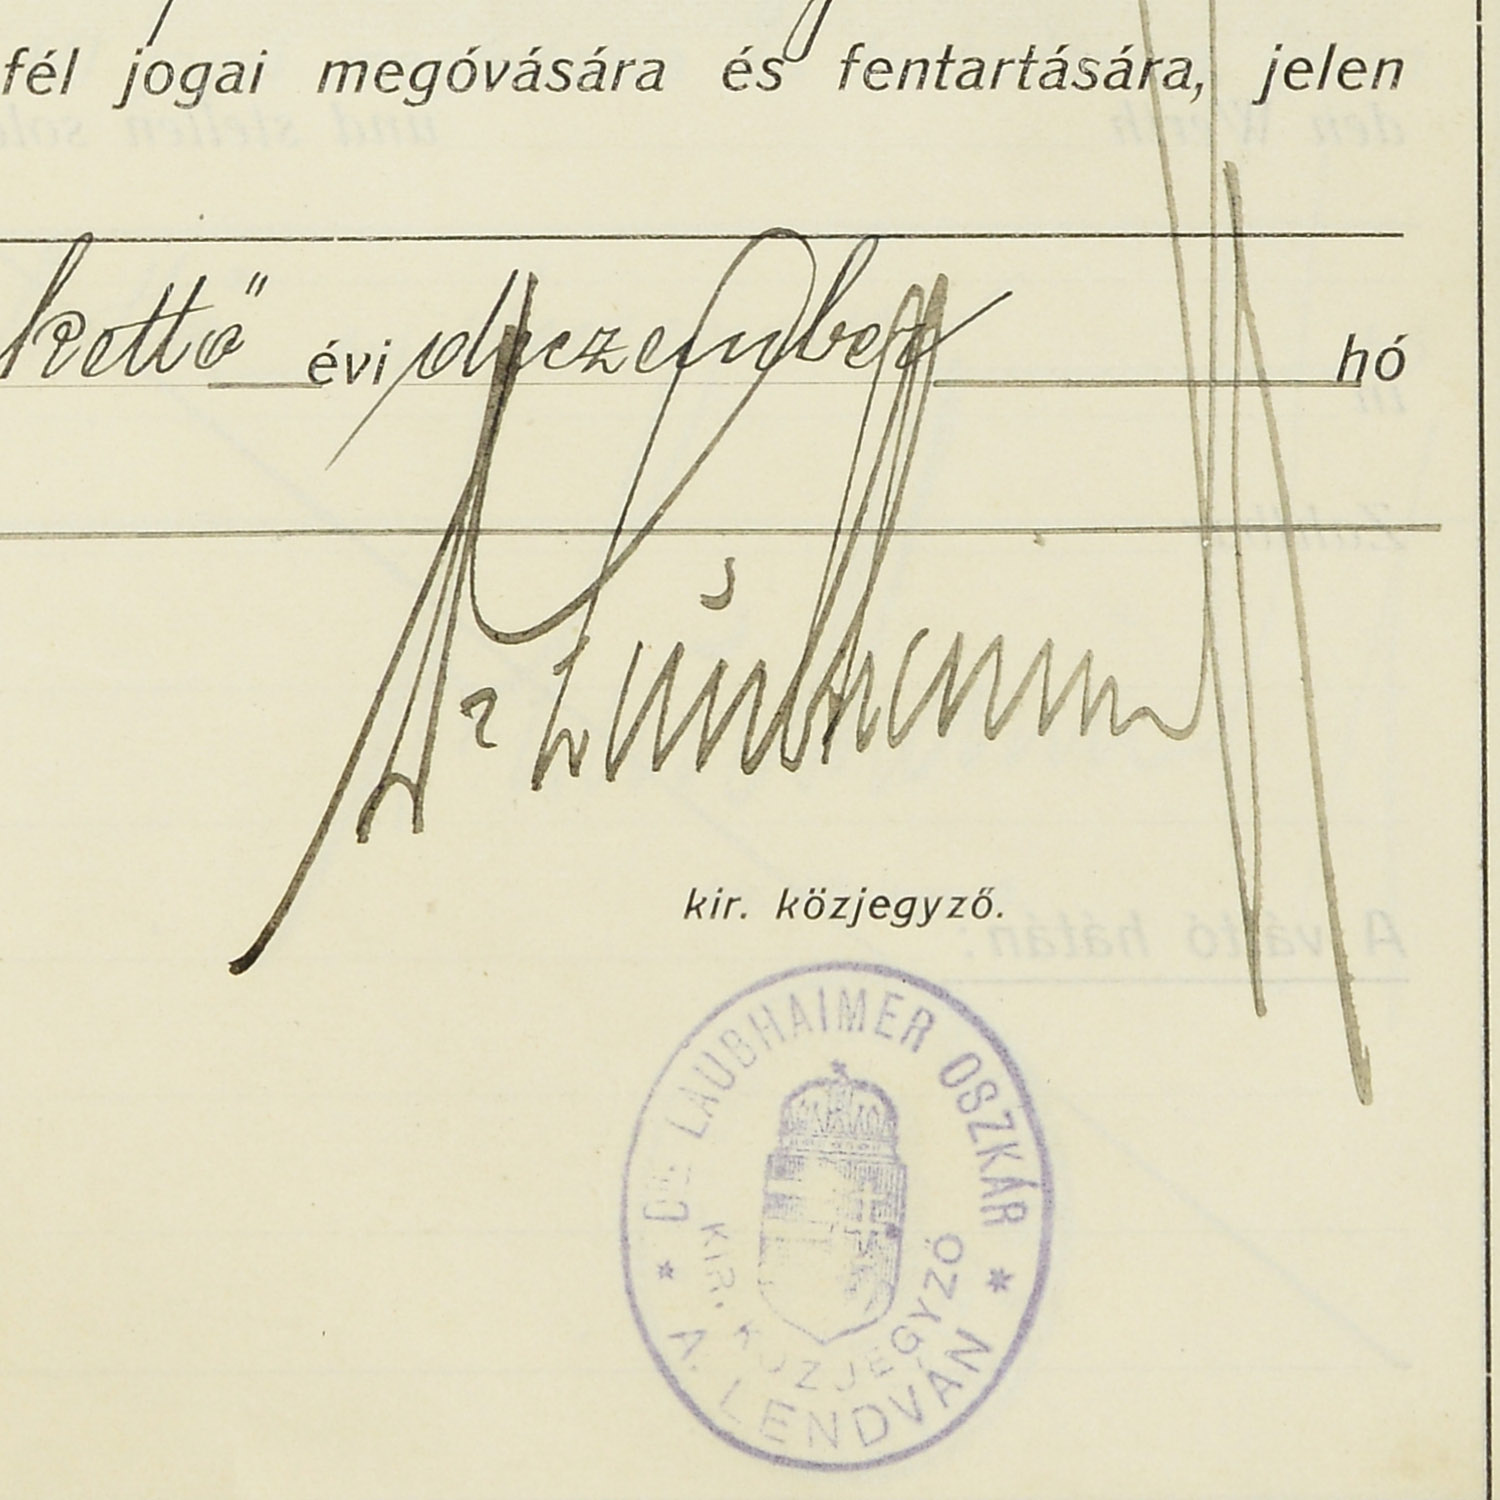 fél jogai megóvására és fentartására, jelen
kettő" évi deczember hó
Dr Laubhaimer
kir. közjegyző.
Dr. LAUBHAIMER OSZKÁR
KIR. KÖZJEGYZŐ
* A. LENDVÁN *